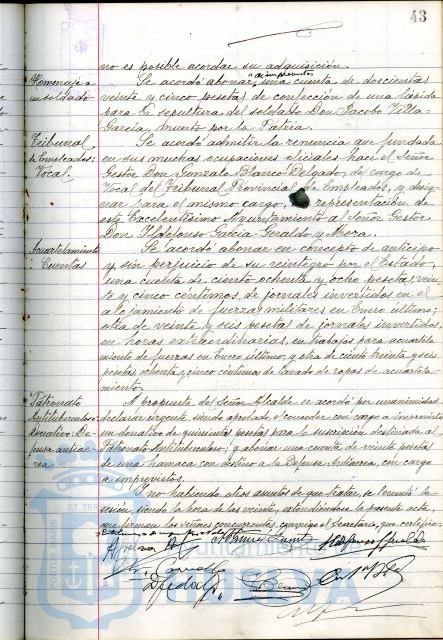 43
no es posible acordar su adquisición.
Homenaje a
un soldado
Se acordó abonar, "a imprevistos" una cuenta de doscientas
veinte y cinco pesetas de confección de una lápida
para la sepultura del soldado Don Jacobo Villa-
García, muerto por la Patria.
Tribunal
Empleados:
Vocal.
Se acordó admitir la renuncia que fundada
en sus muchas ocupaciones oficiales hace el Señor
Gestor Don Gonzalo Blanco Delgado, de cargo de
Vocal del Tribunal Provincial de Empleados, y desig-
nar para el mismo cargo, representación de
este Excelentísimo Ayuntamiento al Señor Gestor
Don Ildefonso García Geraldo y Moca.
Acuartelamiento
Cuentas
Se acordó abonar en concepto de anticipo
y sin perjuicio de su reintegro por el Estado,
una cuenta de ciento ochenta y ocho pesetas, vein-
te y cinco céntimos, de jornales invertidos en el
alojamiento de fuerzas militares en Enero último;
otra de veinte y seis pesetas de jornales invertidos,
en horas extraordinarias, en trabajos para acuartela-
miento de fuerzas en Enero último, y otra de ciento treinta y seis
pesetas ochenta y cinco céntimos de lavado de ropas de acuartela-
miento.
Patronato
Antituberculoso:
Donativo: De-
fensa antiaé-
rea
A propuesta del Señor Alcalde se acordó por unanimidad
declarar urgente, siendo aprobado, el conceder, con cargo a imprevistos
un donativo de quinientas pesetas para la suscripción destinada al
Patronato Antituberculoso; y abonar una cuenta de veinte pesetas
de una hamaca con destino a la Defensa Antiaérea, con cargo
a imprevistos.
Y no habiendo otros asuntos de que tratar, se levantó la
sesión siendo la hora de las veinte, extendiéndose la presente acta,
que firman los señores concurrentes, conmigo el Secretario, que certifico.